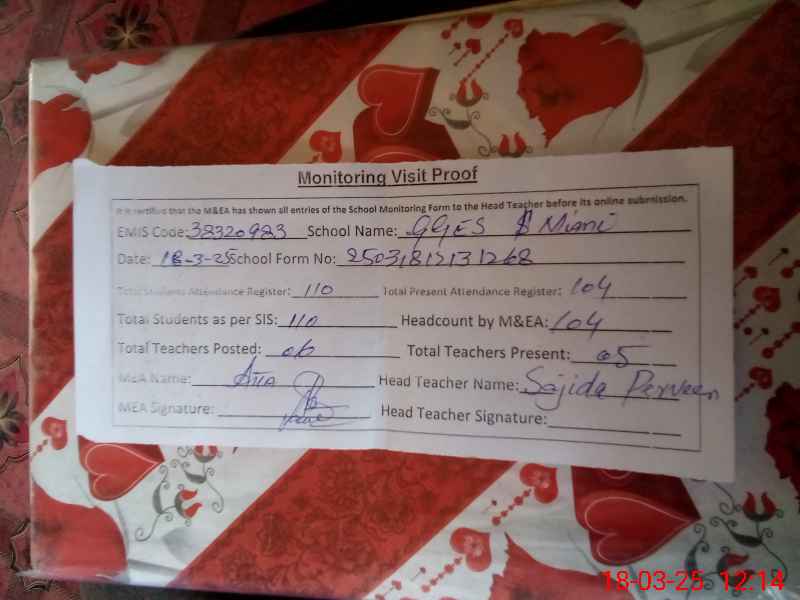 Monitoring Visit Proof
It is certified that the M&EA has shown all entries of the School Monitoring Form to the Head Teacher before its online submission.
EMIS Code: 38320983 School Name: GGES Miani
Date: 18-3-25 School Form No: 25031812131268
Total Students Attendance Register: 110 Total Present Attendance Register: 104
Total Students as per SIS: 110 Headcount by M&EA: 104
Total Teachers Posted: 06 Total Teachers Present: 05
MEA Name: Atta Head Teacher Name: Sajida Perveen
MEA Signature: Head Teacher Signature:
18-03-25 12:14